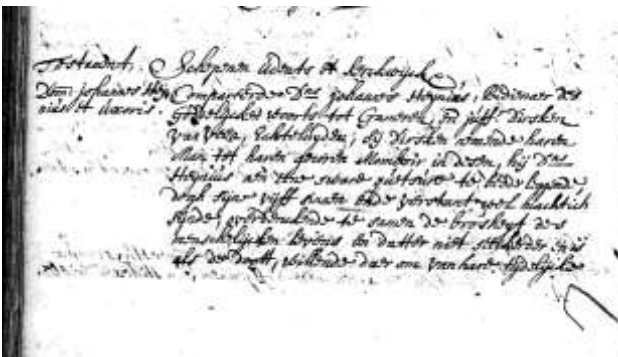 Testament.
Dom: Johannes Hey
nius et uxoris.
Schepenen Aderts et Kerckwijck
Compareerden D.nus Johannes Heynius, bedienaer des
Godtlijcken woorts tot Gameren, en juff.r Dirsken
van Voen, Echteluyden, sij Dirsken nemende haren
Man tot haren gecoren Momboir in desen, hij D.nus
Heynius aen eene sware sieckte te bedde leggende,
doch sijne vijff sinnen ende verstant wel machtich
sijnde, overdenckende te samen de broosheyt des
menschelijcken levens en datter niet sekerder is
als de doott, willende daer om van hare tijdelijcke